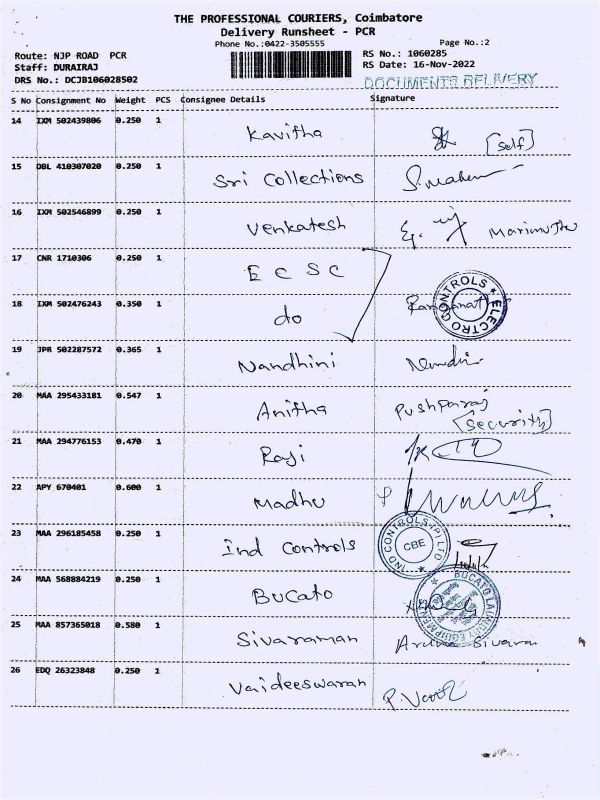 THE PROFESSIONAL COURIERS, Coimbatore
Delivery Runsheet - PCR
Phone No.:0422-3505555
Page No.:2
Route: NJP ROAD PCR
RS No.: 1060285
Staff: DURAIRAJ
RS Date: 16-Nov-2022
DRS No.: DCJB106028502
DOCUMENTS DELIVERY
S No Consignment No Weight PCS Consignee Details Signature
14 IXM 502439806 0.250 1 Kavitha [Self]
15 DBL 410307020 0.250 1 Sri Collections
16 IXM 502546899 0.250 1 Venkatesh
17 CNR 1710306 0.250 1 E C S C
18 IXM 502476243 0.350 1 do
ELECTRO CONTROLS
19 JPR 502287572 0.365 1 Nandhini
20 MAA 295433181 0.547 1 Anitha Pushparaj
[Security]
21 MAA 294776153 0.470 1 Raji
22 APY 670401 0.600 1 Madhu
23 MAA 296185458 0.250 1 Ind Controls
IND CONTROLS (P) LTD
CBE
24 MAA 568884219 0.250 1 Bucato
BUCATO LAUNDRY EQUIPMENT
25 MAA 857365018 0.580 1 Sivaraman
26 EDQ 26323848 0.250 1 Vaideeswaran